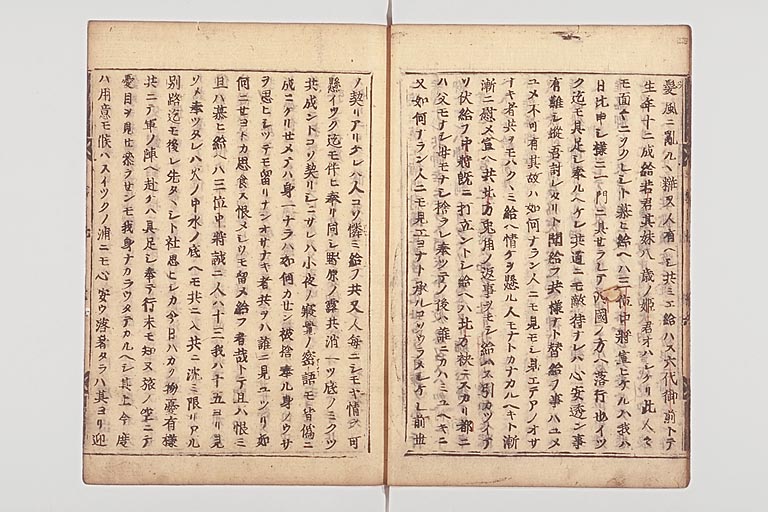 髪風ニ亂ルヘ難又人有ヘシ共ミエ給ハス六代御前トテ
生年十二成給若君其妹八歳ノ姫君オハシケリ此人々
モ面々ニヲクレシト慕ヒ給ヘハ三位中將宣ヒケルハ我ハ
日比申シ樣ニ一門ニ具せラレテ西國ノ方ヘ落行也イツ
ク迄モ具足シ奉ルヘケレ共道ニモ敵待ナレハ心安透ン事
有難シ縱吾討レタリト聞給フ共樣ナト替給フ事ハユメ
ユメ不可有其故ハ如何ナラン人ニモ見モシ見エテアノオサ
ナキ者共ヲモハククミ給ヘ情ケヲ懸ル人モナトカナカルヘキト漸
漸ニ慰メ宣ヘ共北方兎角ノ返事ヲモシ給ハス引カツイテ
ソ伏給フ中將既ニ打立ントシ給ヘハ北方袂ニスカリ都ニ
ハ父モナシ母モナシ捨ラレ奉ツテノ後ハ誰ニカハミユヘキニ
又如何ナラン人ニモ見エヨナト承ルコソウラメシケレ前世
ノ契リアリケレハ人コソ憐ミ給フ共又人每ニシモヤ情ヲ可
懸イツク迄モ伴ヒ奉リ同シ野原ノ露共消一ツ底ノミクツ
共成ントコソ契リシニサレハ小夜ノ寢覺ノ密語モ皆僞ニ
成ニケリせメテハ身一ナラハ如何カせン被捨奉ル身ノウサ
ヲ思ヒシツテモ留リナンオサナキ者共ヲハ誰ニ見ユツリ如
何ニせヨトカ思食ス恨メシウモ留メ給フ者哉トテ且ハ恨ミ
且ハ慕ヒ給ヘハ三位中將誠ニ人ハ十三我ハ十五ヨリ見
ソメ奉ツタレハ火ノ中水ノ底ヘモ共ニ入共ニ沈ミ限リアル
別路迄モ後レ先タヽシト社思ヒシカ今日ハカク物憂有樣
共ニテ軍ノ陣ヘ赴ケハ具足シ奉テ行末モ知ヌ旅ノ空ニテ
憂目ヲ見せ奉ラサンモ我身ナカラウタテカルヘシ其上今度
ハ用意モ候ハスイツクノ浦ニモ心安ウ落着タラハ其ヨリ迎